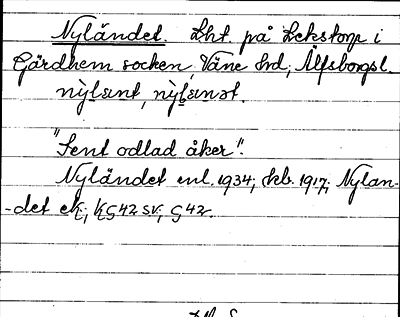 Nyländet. Lht på Lekstorp i
Gärdhem socken, Väne hd, Älfsborgs l.
"Sent odlad åker".
Nyländet enl. 1934; Jkb. 1917; Nylan-
-det ek; KG 42 SV; G 42.